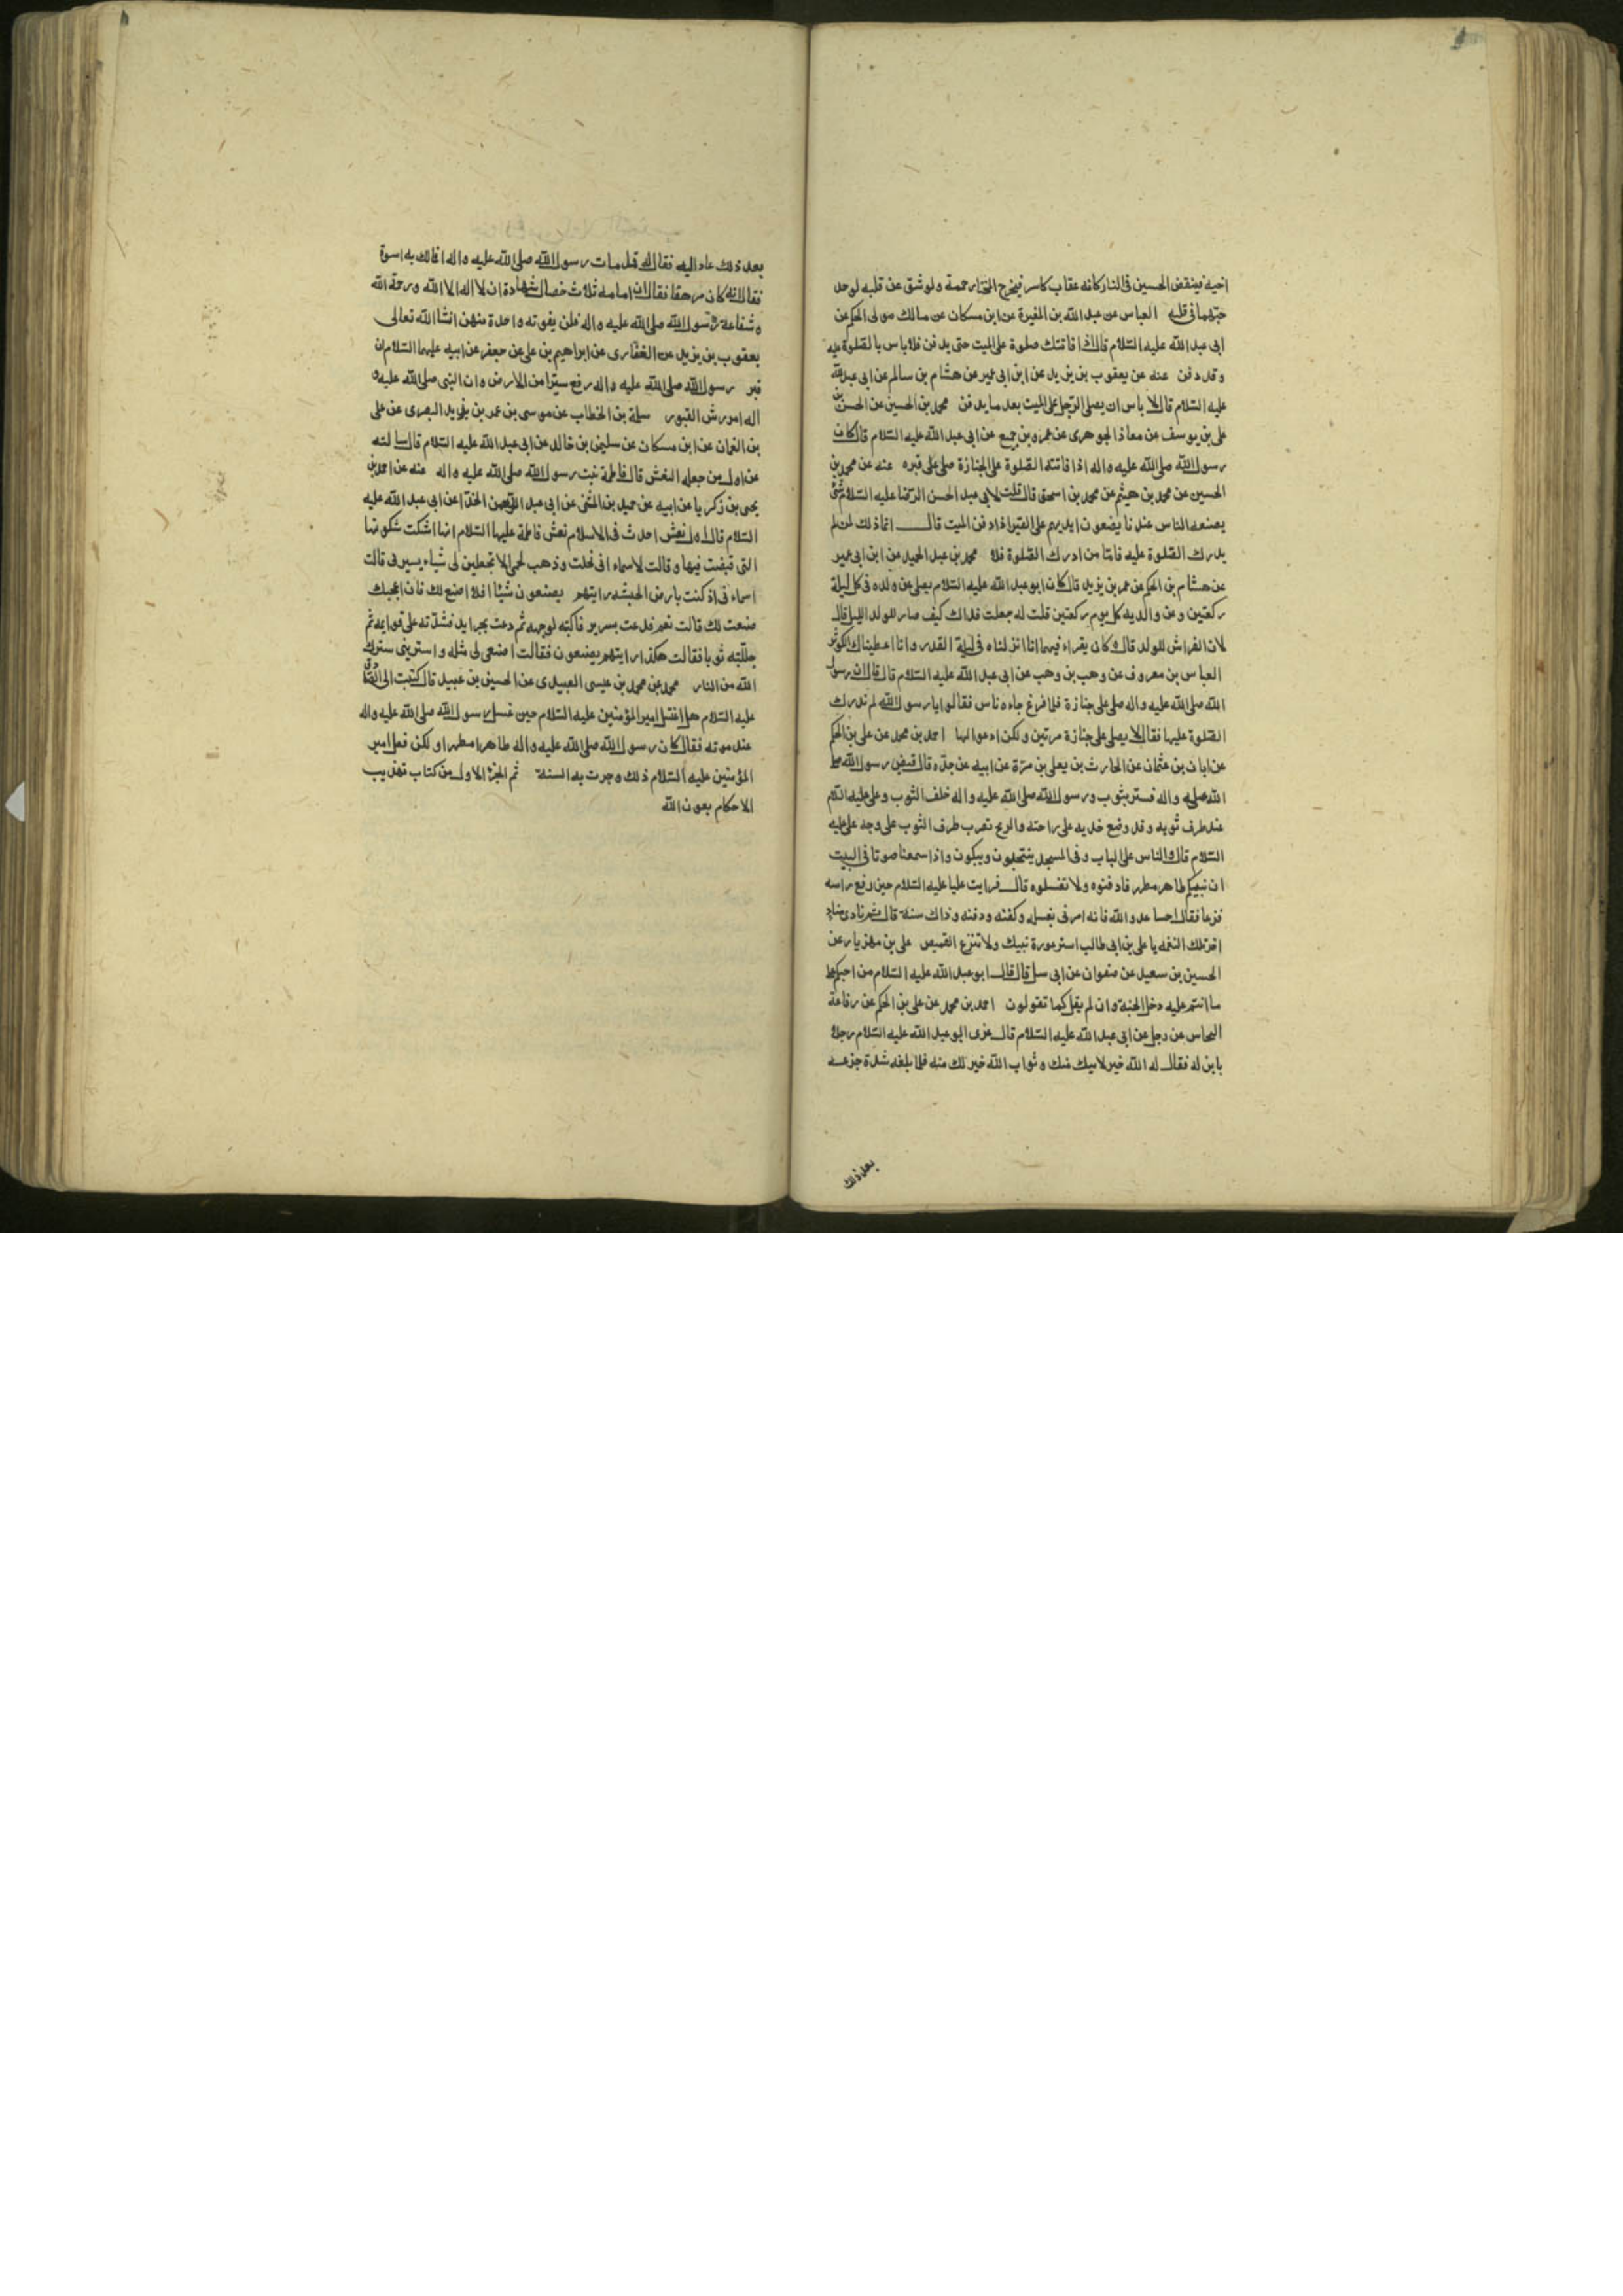 اخيه فينقض الحسين فى النار كانه عقاب كاسر فيخرج المختار حممة ولو شق عن قلبه لوجد
حبهما فى قلبه العباس عن عبد الله بن المغيرة عن ابن مسكان عن مالك مولى الحكم عن
ابى عبد الله عليه السلام قال اذا فاتتك صلوة على الميت حتى يدفن فلا باس بالصلوة عليه
وقد دفن عنه عن يعقوب بن يزيد عن ابن ابى عمير عن هشام بن سالم عن ابى عبد الله
عليه السلام قال لا باس ان يصلى الرجل على الميت بعد ما يدفن محمد بن الحسين عن الحسن بن
على بن يوسف عن معاذ الجوهرى عن عمرو بن جميع عن ابى عبد الله عليه السلام قال كان
رسول الله صلى الله عليه واله اذا فاتته الصلوة على الجنازة صلى على قبره عنه عن محمد بن
الحسين عن محمد بن هيثم عن محمد بن اسحق قال قلت لابى عبد الحسن الرضا عليه السلام شئ
يصنعه الناس عندنا يضعون ايديهم على القبر اذا دفن الميت قال انما ذلك لمن لم
يدرك الصلوة عليه فاما من ادرك الصلوة فلا محمد بن عبد الحميد عن ابن ابى عمير
عن هشام بن الحكم عن عمر بن يزيد قال كان ابو عبد الله عليه السلام يصلى عن ولده فى كل ليلة
ركعتين وعن والديه كل يوم ركعتين قلت له جعلت فداك كيف صار للولد الليل قال
لان الفراش للولد قال وكان يقراء فيهما انا انزلناه فى ليلة القدر وانا اعطيناك الكوثر
العباس بن معروف عن وهب بن وهب عن ابى عبد الله عليه السلام قال قال ان رسول
الله صلى الله عليه واله صلى على جنازة فلما فرغ جاءه ناس فقالوا يا رسول الله لم ندرك
الصلوة عليها فقال لا يصلى على جنازة مرتين ولكن ادعوا لها احمد بن محمد عن على بن الحكم
عن ابان بن عثمان عن الحارث بن يعلى بن مرة عن ابيه عن جده قال قبض رسول الله صلى
الله عليه واله فستر بثوب ورسول الله صلى الله عليه واله خلف الثوب وعلى عليه السلام
عند طرف ثوبه وقد وضع خديه على راحته والريح تضرب طرف الثوب على وجه على عليه
السلام قال والناس على الباب وفى المسجد ينتحبون ويبكون واذا سمعنا صوتا فى البيت
ان نبيكم طاهر مطهر فادفنوه ولا تغسلوه قال فرايت عليا عليه السلام حين رفع راسه
فزعا فقال اخسا عدو الله فانه امرنى بغسله وكفنه ودفنه وذاك سنة قال ثم نادى مناد
اخر تلك النغمه يا على بن ابى طالب استر عورة نبيك ولا تنزع القميص على بن مهزيار عن
الحسين بن سعيد عن صفوان عن ابى سل قال قال ابو عبد الله عليه السلام من احبكم على
ما انتم عليه دخل الجنة وان لم يقل كما تقولون احمد بن محمد عن على بن الحكم عن رفاعة
النحاس عن رجل عن ابى عبد الله عليه السلام قال عزى ابو عبد الله عليه السلام رجلا
بابن له فقال له الله خير لابنك منك وثواب الله خير لك منه فلما بلغه شدة جزعه
بعد ذلك
بعد ذلك عاد اليه فقال له قد مات رسول الله صلى الله عليه واله افالك به اسوة
فقال انه كان مرهقا فقال ان امامه ثلاث خصال شهادة ان لا اله الا الله ورحمة الله
وشفاعة رسول الله صلى الله عليه واله فلن يفوته واحدة منهن انشا الله تعالى
يعقوب بن يزيد عن الغفارى عن ابراهيم بن على عن جعفر عن ابيه عليهما السلام ان
قبر رسول الله صلى الله عليه واله رفع سترا من الارض وان النبى صلى الله عليه و
اله امر برش القبور سلمة بن الخطاب عن موسى بن عمر بن يزيد البصرى عن على
بن النعمان عن ابن مسكان عن سليمن بن خالد عن ابى عبد الله عليه السلام قال سالته
عن اول من جعل له النعش قال فاطمة بنت رسول الله صلى الله عليه واله عنه عن احمد بن
يحيى بن زكريا عن ابيه عن حميد بن المثنى عن ابى عبد الرحمن الحذا عن ابى عبد الله عليه
السلام قال اول نعش احدث فى الاسلام نعش فاطمة عليها السلام انها اشتكت شكوتها
التى قبضت فيها وقالت لاسماء انى نحلت وذهب لحمى الا تجعلين لى شياء يسترنى قالت
اسماء انى اذ كنت بارض الحبشه رايتهم يصنعون شيئا افلا اصنع لك فان اعجبك
صنعت لك قالت نعم فدعت بسرير فاكبته لوجهه ثم دعت بجرايد فشدته على قوايمه ثم
جللته ثوبا فقالت هكذا رايتهم يصنعون فقالت اصنعى لى مثله واسترينى سترك
الله من النار محمد عن محمد بن عيسى العبيدى عن الحسين بن عبيد قال كتبت الى الصادق
عليه السلام هل اغتسل امير المؤمنين عليه السلام حين غسل رسول الله صلى الله عليه واله
عند موته فقال كان رسول الله صلى الله عليه واله طاهرا مطهرا ولكن فعل امير
المؤمنين عليه السلام ذلك وجرت به السنة تم الجزء الاول من كتاب تهذيب
الاحكام بعون الله